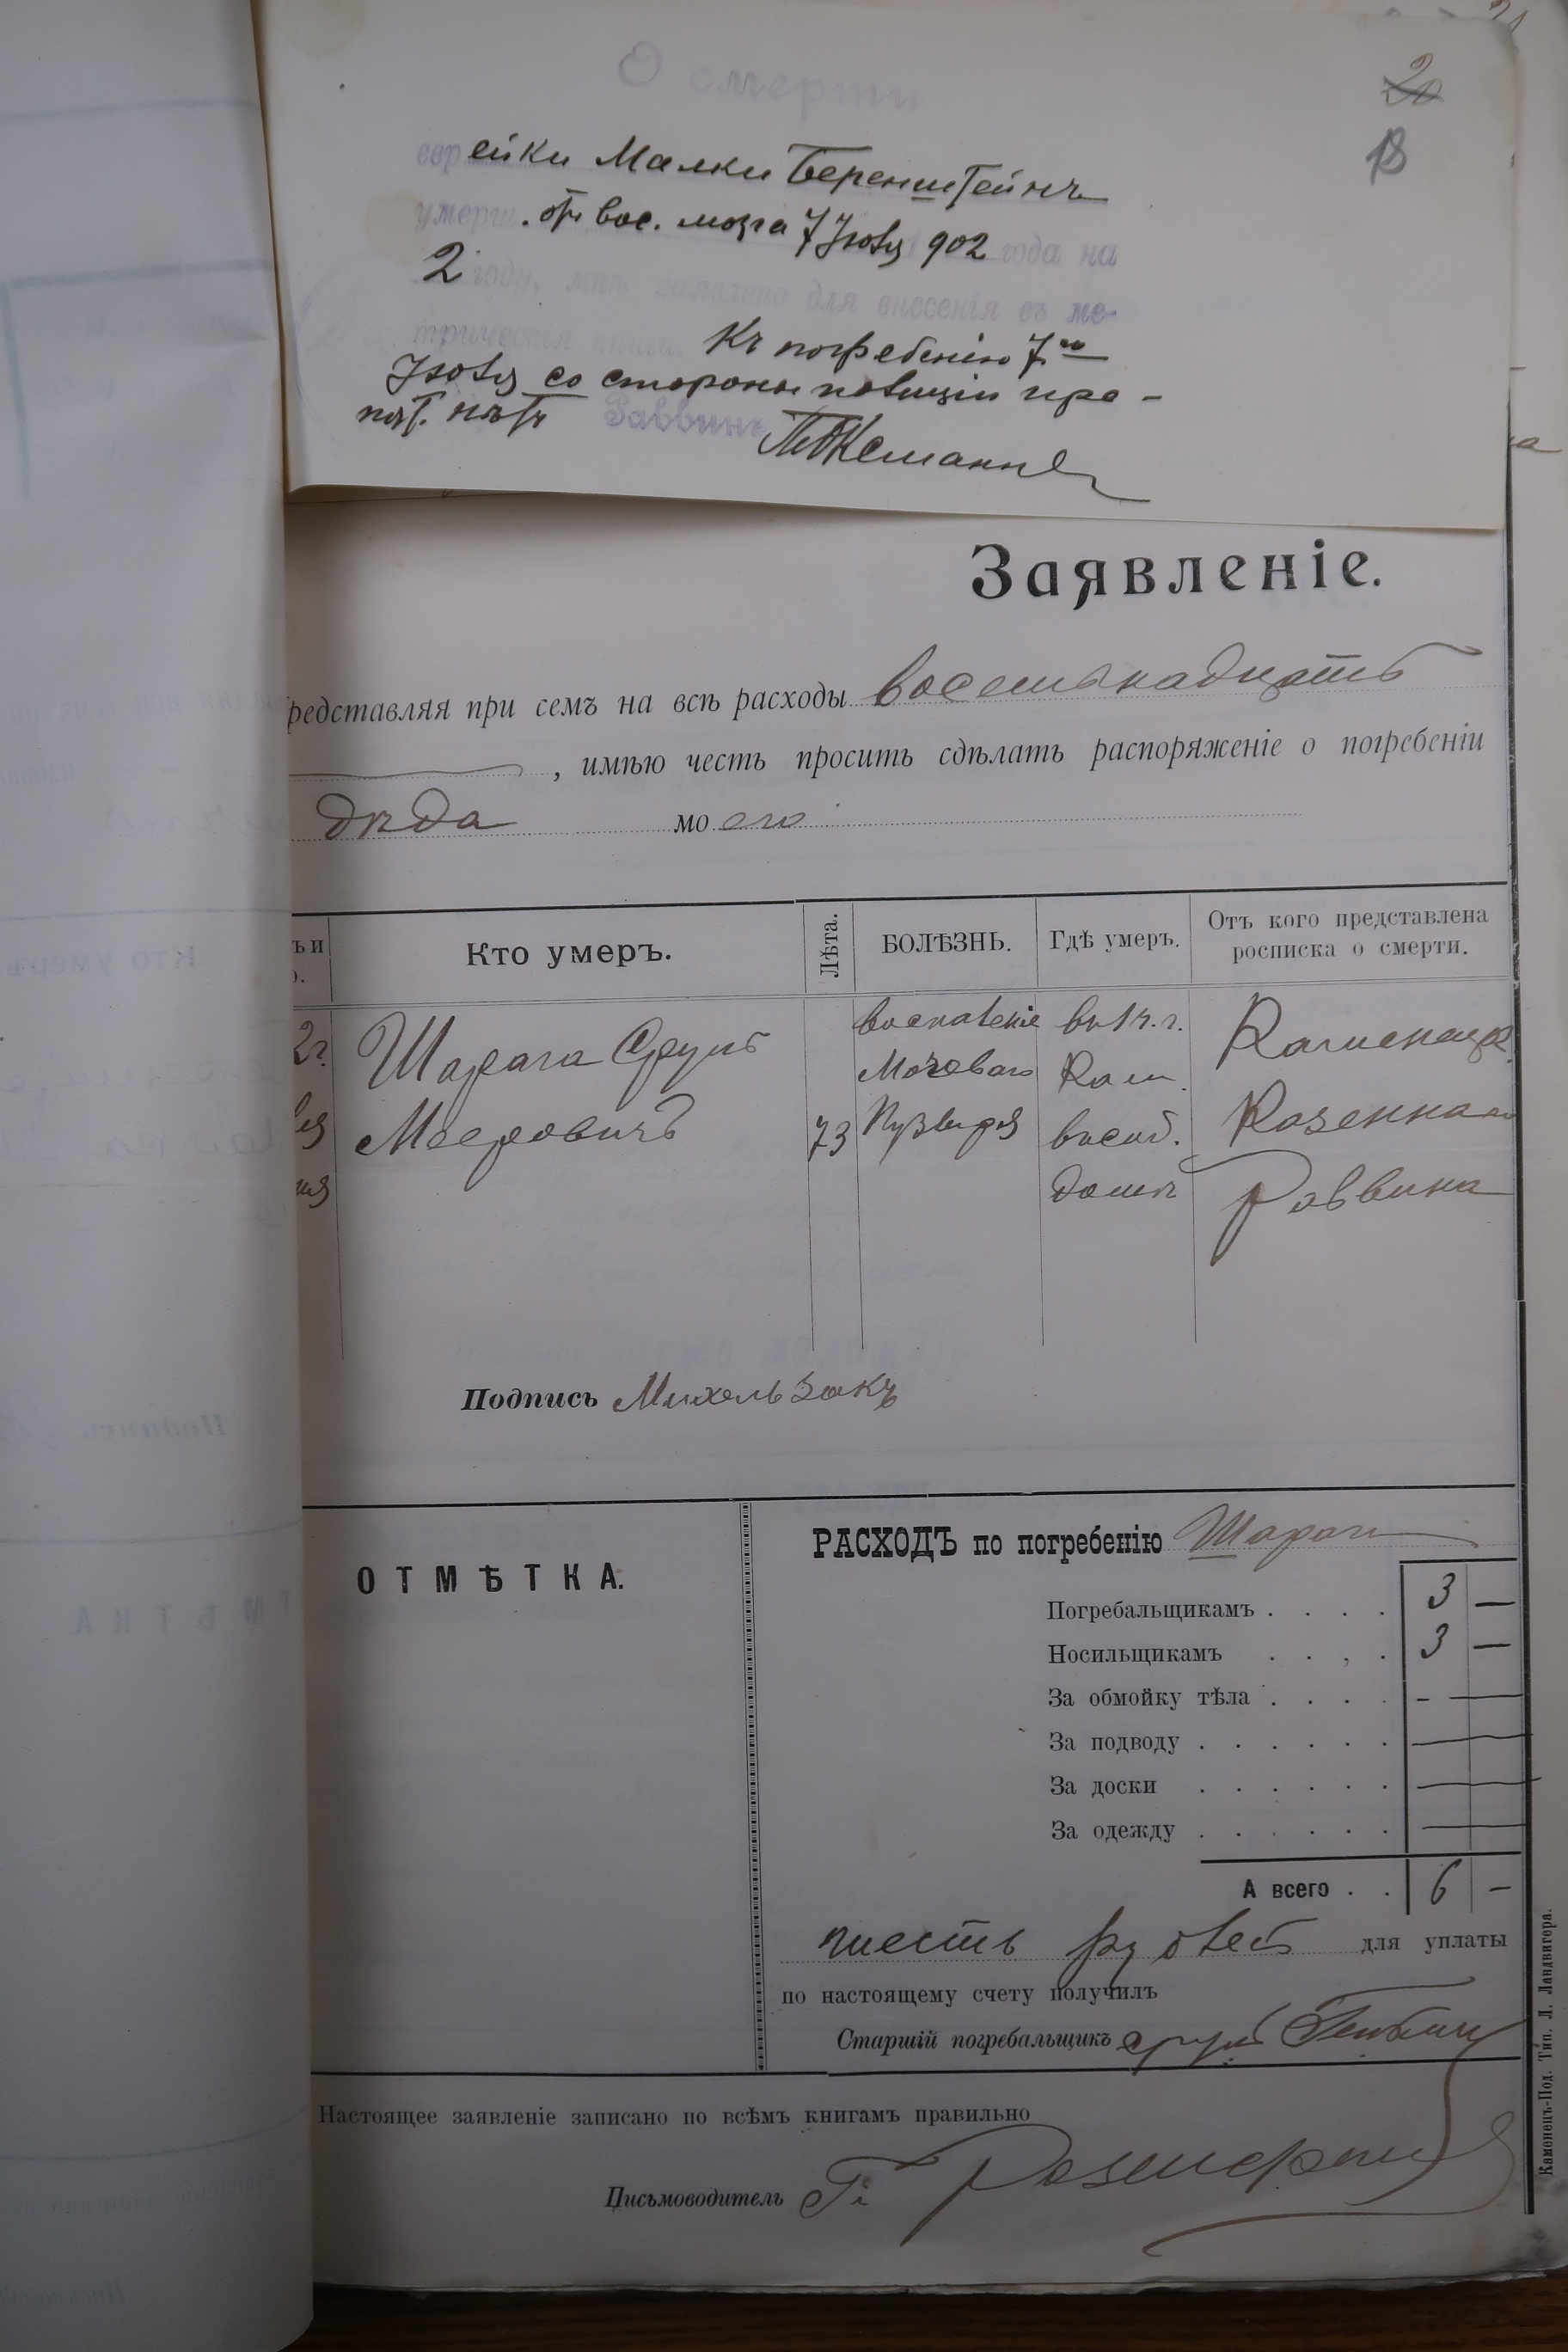 О смерти
20
13
еврейки Малки Беренштейнъ
умерш. отъ вос. мозга 7 Июля 902 года на
2 году, мнѣ заявлено для внесенія въ ме-
трическія книги. Къ погребенію 7го
Июля со стороны полиціи пре-
пят. нѣтъ Раввинъ
Заявленіе.
редставляя при семъ на всѣ расходы восемьнадцать
, имѣю честь просить сдѣлать распоряженіе о погребеніи
дѣда моего
ъ и
Кто умеръ.
Лѣта.
БОЛѢЗНЬ.
Гдѣ умеръ.
Отъ кого представлена
росписка о смерти.
2г.
Шарага Сруль
Мееровичъ
73
воспаленіе
Мочеваго
Пузыря
въ 1 ч. г.
Кам.
въ соб.
домѣ
Каменецк.
Казеннаго
Раввина
Подпись Михель Закъ
ОТМѢТКА.
РАСХОДЪ по погребенію Шараги
Погребальщикамъ . . . . 3 —
Носильщикамъ . . , . 3 —
За обмойку тѣла . . . . - —
За подводу . . . . . . —
За доски . . . . . . —
За одежду . . . . . . —
А всего . . 6 —
шесть рублей для уплаты
по настоящему счету получилъ
Старшій погребальщикъ Сруль
Настоящее заявленіе записано по всѣмъ книгамъ правильно
Письмоводитель Г.
Каменецъ-Под. Тип. Л. Ландвигера.